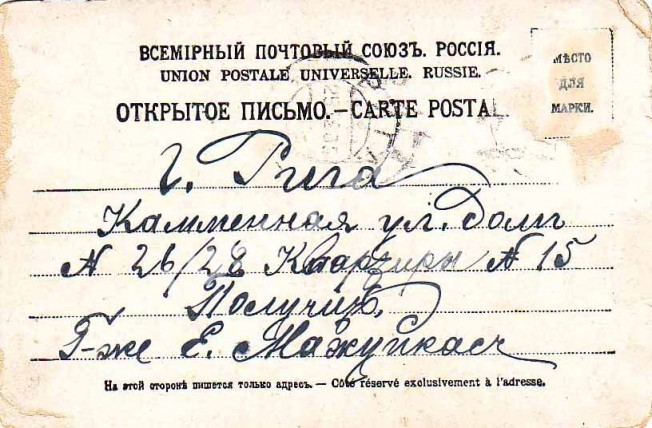 ВСЕМІРНЫЙ ПОЧТОВЫЙ СОЮЗЪ. РОССІЯ.
UNION POSTALE UNIVERSELLE. RUSSIE.
МѢСТО
ДЛЯ
МАРКИ.
ОТКРЫТОЕ ПИСЬМО.—CARTE POSTAL
г. Рига
Камменная ул. Домъ
N 26/28 Квартиры N 15
Получить
Г-же Е.
На этой сторонѣ пишется только адресъ. — Côté réservé exclusivement à l'adresse.